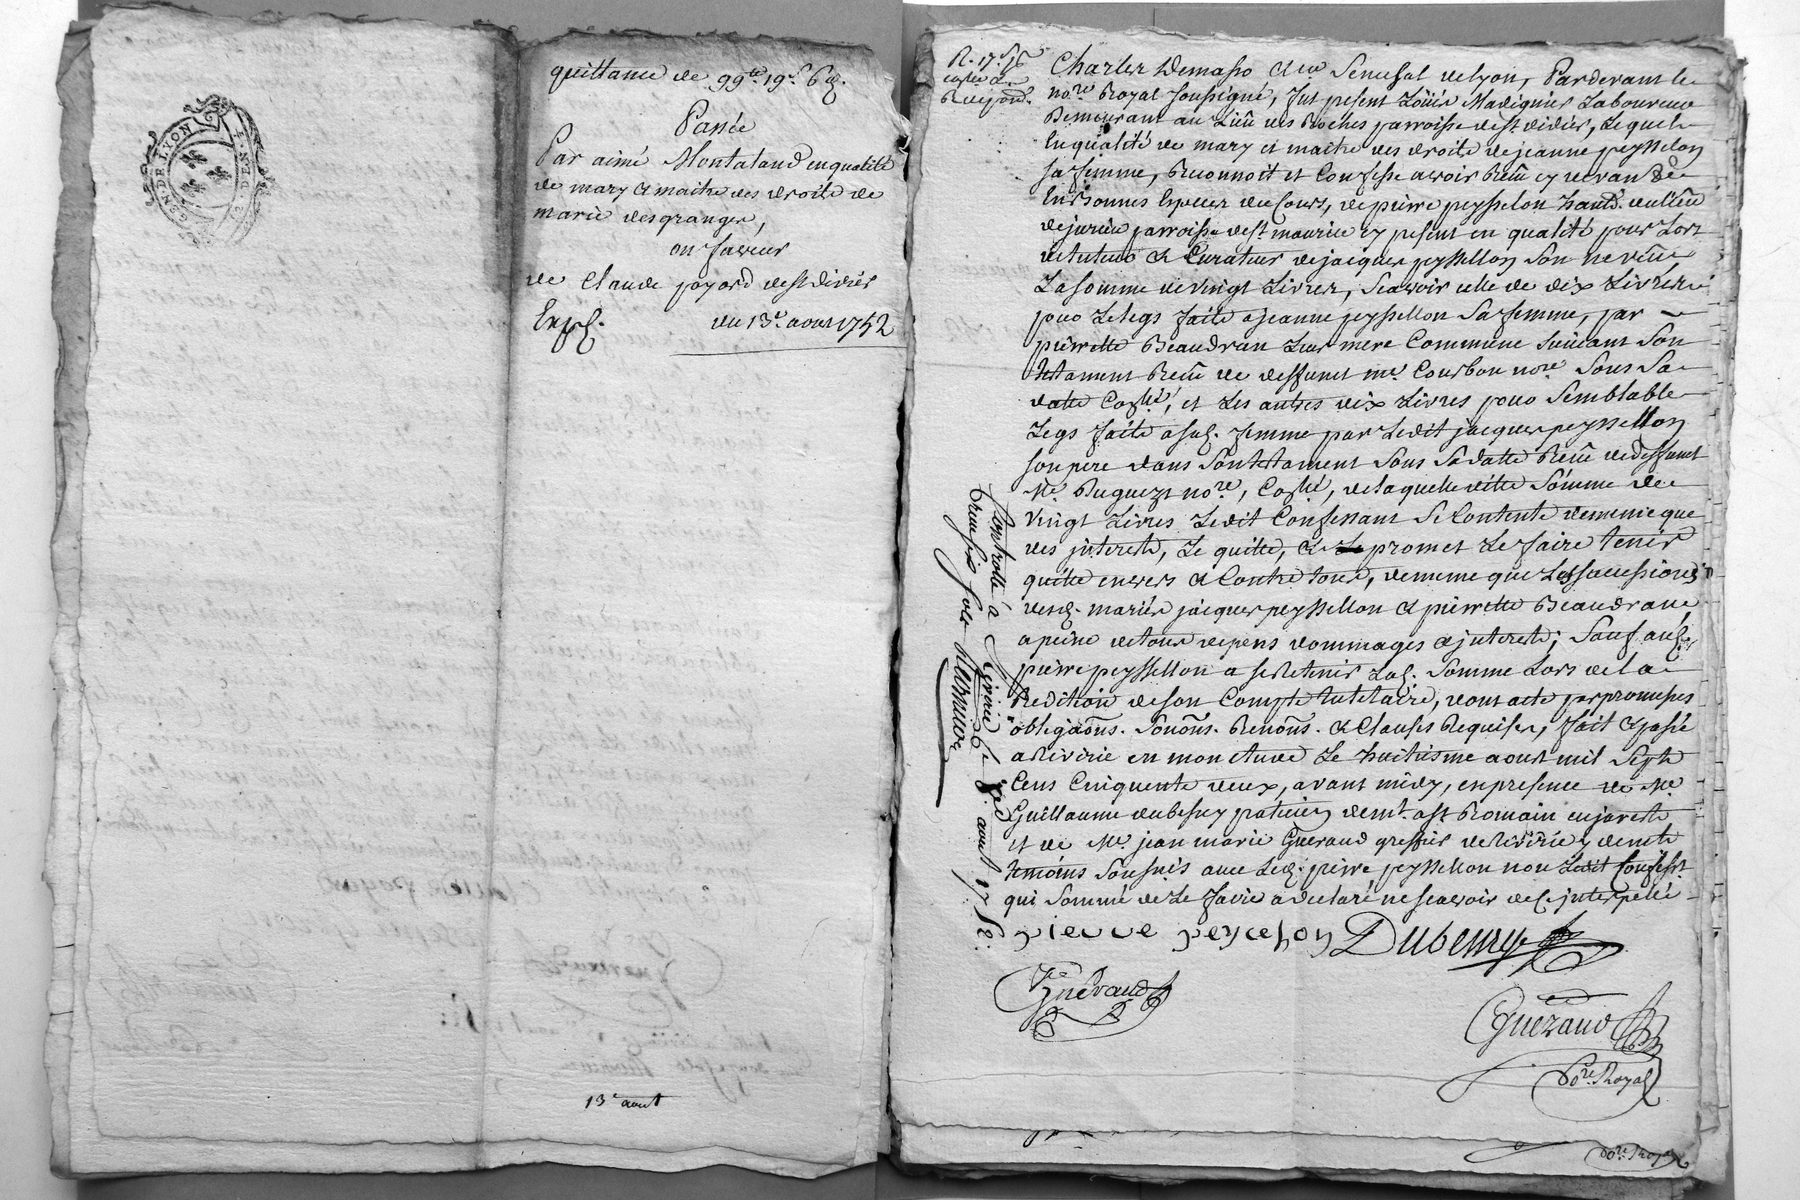 GEN. DE LYON
2. DEN. 4
quittance de 99ᵗᵗ 19ˢ 6d.
Passée
Par aimé Montaland en qualité
de mary & maitre des droits de
marie desgranges,
en faveur
de Claude payard de st didier
Exp.
du 13ᵉ aoust 1752
13ᵉ aout
R. 17ˢ
Charles Demasso & en Senechal de Lyon, Pardevant le
noʳᵉ Royal soussigné, fut present Loüis Madignier Laboureur
Demeurant au Lieu des Roches parroisse de st didier, Lequel
en qualité de mary et maitre des droits de jeanne peyssellon
sa femme, Reconnoit et Confesse avoir Reçu cy devant &
en sommes Especes du Cours, de pierre peysselon habt. du lieu
de jurieu parroisse de st maurice cy present en qualité pour Lors
de tuteur & Curateur de jacques peyssellon son neveu
La somme de vingt Livres, Sçavoir celle de dix Livres
pour Le legs faite a jeanne peyssellon Sa femme, par
pierrette Beaudran Leur mere Commune Suivant Son
testament Reçu de deffunct mᵉ. Courbon noʳᵉ Sous Sa
datte Coʰˡé, et Les autres dix Livres pour Semblable
Legs faite a sad. femme par Ledit jacques peyssellon
son pere dans Son testament Sous Sa datte Reçu de deffunct
Mᵉ Duguezt noʳᵉ, Coʰˡé, de laquelle ditte Somme de
vingt Livres Ledit Confessant Se Contente de meme que
des jnterests, Le quitte, & promet Le faire tenir
quitte envers & Contre tous, de meme que Les successions
desd. mariés jacques peyssellon & pierrette Beaudran
a peine de tous depens dommages & jnterests; Sauf aud.
pierre peyssellon a se Retenir Lad. Somme Lors de la
Reddition de son Compte tutelaire, dont acte par promesses
obligaõns. Soñons. Renõns. & Clauses Requises, fait & passé
a Riverie en mon etude Le huitiesme aoust mil Sept
Cens Cinquante deux, avant midy, en presence de Mᵉ
Guillaume dubessey praticien demt. a st Romain en jarest
et de Mᵉ jean marie Gueraud greffier de Riverie y demt
temoins Sousnés avec Led. pierre peyssellon non Ledit Confesst
qui Sommé de Le faire a declaré ne sçavoir de ce jnterpellé
pierre peyselon Dubessey
Gueraud
Gueraud
Noʳᵉ Royal
Controllé a Riverie Le 8. aout 1752.
Noʳᵉ Royal